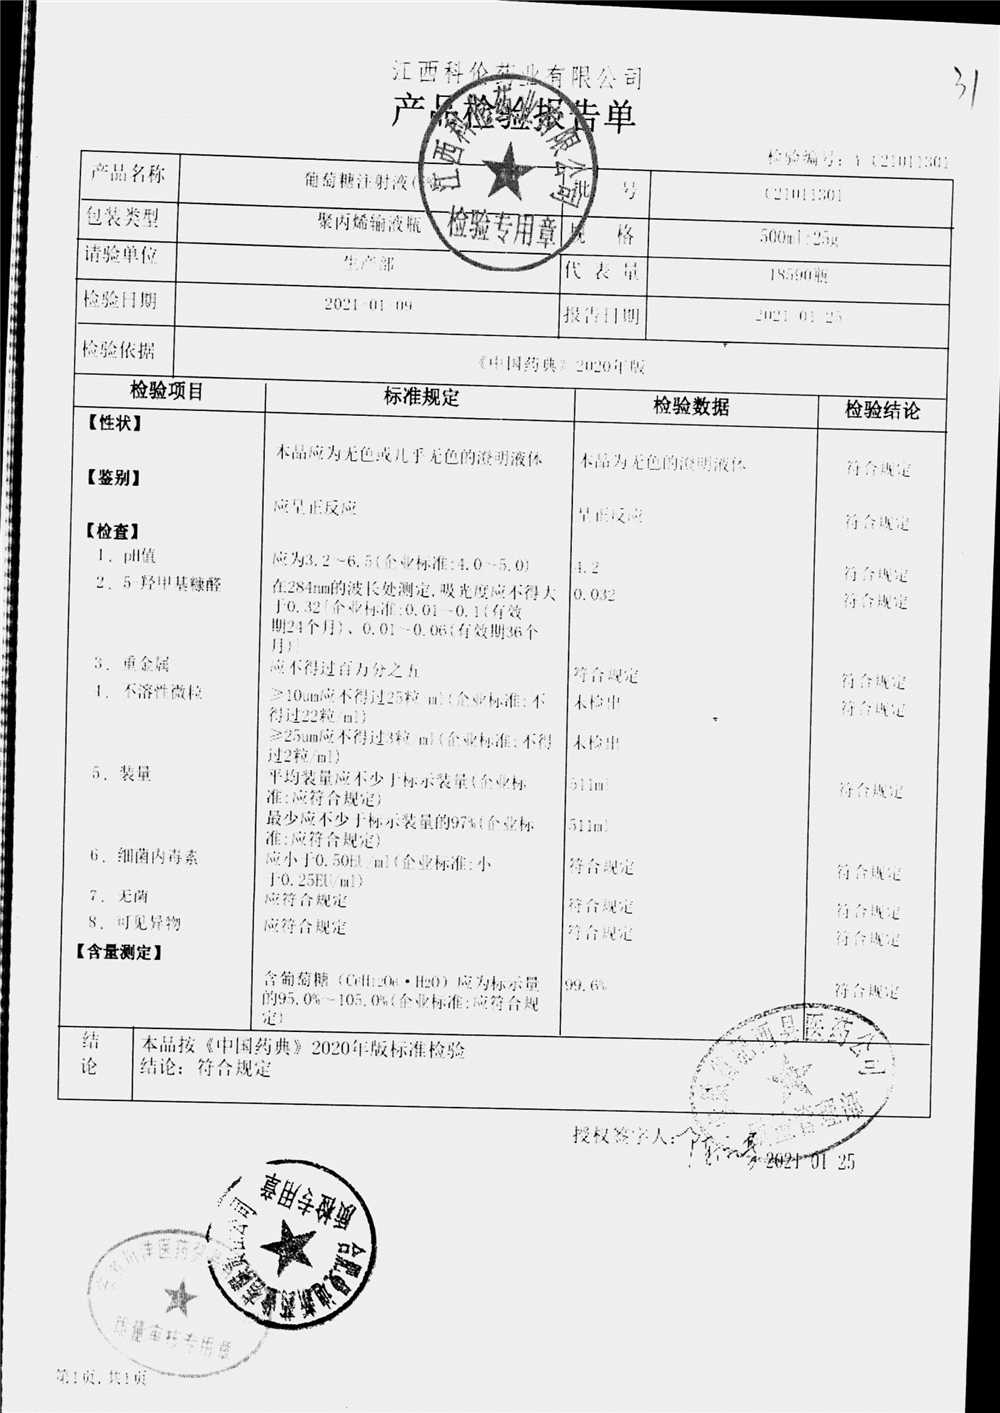 31
江西科伦药业有限公司
产品检验报告单
江西科伦药业有限公司
检验专用章
检验编号: Y-C21011301
产品名称 葡萄糖注射液 批 号 C21011301
包装类型 聚丙烯输液瓶 规 格 500ml:25g
请验单位 生产部 代 表 量 18590瓶
检验日期 2021-01-09 报告日期 2021-01-25
检验依据 《中国药典》2020年版
检验项目 标准规定 检验数据 检验结论
【性状】
本品应为无色或几乎无色的澄明液体 本品为无色的澄明液体 符合规定
【鉴别】
应呈正反应 呈正反应 符合规定
【检查】
1、pH值 应为3.2~6.5(企业标准:4.0~5.0) 4.2 符合规定
2、5-羟甲基糠醛 在284nm的波长处测定,吸光度应不得大 0.032 符合规定
于0.32[企业标准:0.01~0.1(有效
期24个月)、0.01~0.06(有效期36个
月)]
3、重金属 应不得过百万分之五 符合规定 符合规定
4、不溶性微粒 ≥10um应不得过25粒/ml(企业标准:不 未检出 符合规定
得过22粒/ml)
≥25um应不得过3粒/ml(企业标准:不得 未检出
过2粒/ml)
5、装量 平均装量应不少于标示装量(企业标 511ml 符合规定
准:应符合规定)
最少应不少于标示装量的97%(企业标 511ml
准:应符合规定)
6、细菌内毒素 应小于0.50EU/ml(企业标准:小 符合规定 符合规定
于0.25EU/ml)
7、无菌 应符合规定 符合规定 符合规定
8、可见异物 应符合规定 符合规定 符合规定
【含量测定】
含葡萄糖（C6H12O6·H2O）应为标示量 99.6% 符合规定
的95.0%~105.0%(企业标准:应符合规
定)
结论 本品按《中国药典》2020年版标准检验
结论: 符合规定
西县医药公司
授权签字人:
2021 01 25
质检专用章
质量审核专用章
第1页,共1页